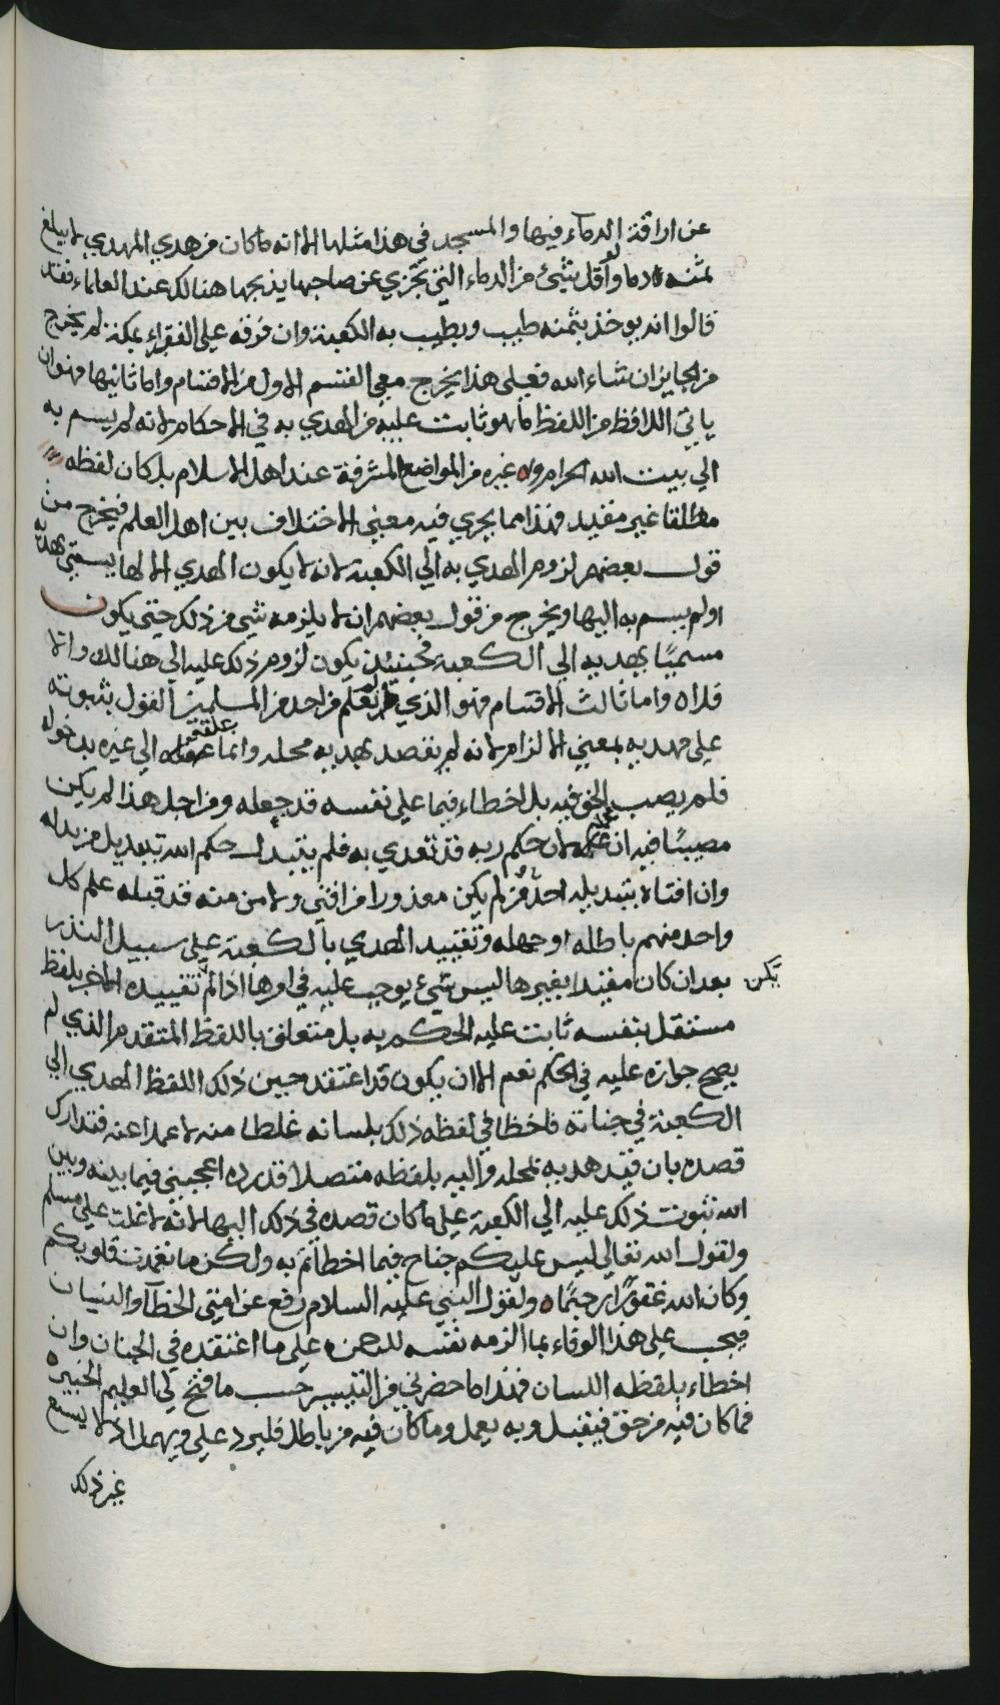 عن اراقة الدماء فيها والمسجد في هذا مثلها الا انه ما كان من هدي المهدي لا يبلغ
ثمنه دما ولو اقل شيء من الدماء التي تجزي عن صاحبها يذبحها هنالك عند العلماء فقد
قالوا انه يوخذ بثمنه طيب ويطيب به الكعبة وان فرقه على الفقراء بمكة لم يخرج
من الجايز ان شاء الله فعلى هذا يخرج معي القسم الاول من الاقسام واما ثانيها فهو ان
ياتي اللافظ من اللفظ ما هو ثابت عليه من الهدي به في الاحكام لانه لم يسم به
الي بيت الله الحرام ولا غيره من المواضع المشرفة عند اهل الاسلام بل كان لفظه
مطلقا غير مقيد فهذا مما يجري فيه معني الاختلاف بين اهل العلم فيخرج من
قول بعضهم لزوم الهدي به الي الكعبة لانه لا يكون الهدي الا لها يسمي بهديه
او لم يسم به اليها ويخرج من قول بعضهم ان لا يلزمه شي من ذلك حتي يكون
مسميًا بهديه الي الكعبة فحينئذ يكون لزوم ذلك عليه الي هنالك والا
فلا ه واما ثالث الاقسام فهو الذي لم نعلم من احد من المسلمين القول بثبوته
على مهديه بمعني الالزام لانه لم يقصد بهديه محله وانما علقه الي غيره بدخوله
فلم يصب الحق فيه بل اخطاء فيما على نفسه قد جعله ومن اجل هذا لم يكن
مصيبًا فيه ان عمله لان حكم ربه قد تعدي به فلم يتبدل حكم الله تبديل من بدله
وان افتاه بتبديله احدٌ لم يكن معذورا من افتي ولا من منه قد قبله علم كل
واحد منهم باطله او جهله وتقييد الهدي بالكعبة على سبيل النذر
بعد ان كان مقيدا بغيرها ليس شيء يوجب عليه في امرها اذا لم تكن تقييده الاخر بلفظ
مستقل بنفسه ثابت عليه الحكم به بل متعلق باللفظ المتقدم الذي لم
يصح جوازه عليه في الحكم نعم الا ان يكون قد اعتقد حين ذلك اللفظ الهدي الي
الكعبة في جنانه فاخطا في لفظه ذلك بلسانه غلطا منه لا عمدا عنه فتدارك
قصده بان قيد هديه لمحله واليه بلفظه متصلا قد رده اعجبني فيما بينه وبين
الله ثبوت ذلك عليه الي الكعبة على ما كان قصده في ذلك اليها لانه لا غلت على مسلم
ولقول الله تعالي ليس عليكم جناح فيما اخطاتم به ولكن ما تعمدت قلوبكم
وكان الله غفورًا رحيمًا ه ولقول النبي عليه السلام رفع عن امتي الخطآ والنسيان
فيجب على هذا الوفاء بما الزمه نفسه للرحمن على ما اعتقده في الجنان وان
اخطاء بلفظه اللسان فهذا ما حضرني من التيسير حسب ما فتح لي العليم الخبير ه
فما كان فيه من حق فيقبل وبه يعمل وما كان فيه من باطل فليرد علي ويهمل اذ لا يسع
غير ذلك